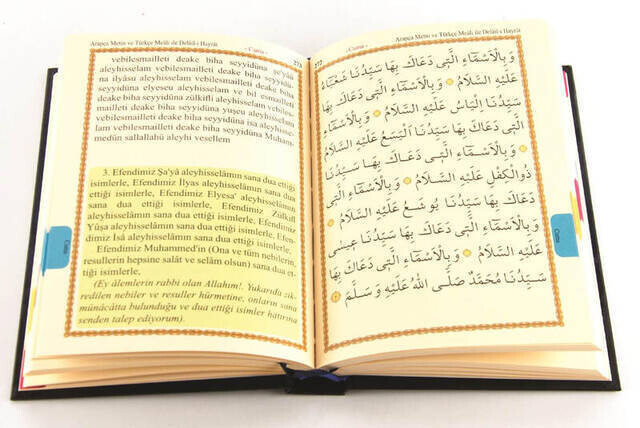 Arapça Metin ve Türkçe Meâli ile Delâil-i Hayrât
- Cuma -
273
vebilesmailleti deake biha seyyidüna şe'yâü
aleyhisselam vebilesmailleti deake biha seyyidü
na ilyâsu aleyhisselam vebilesmailleti deake biha
seyyidüna elyeseu aleyhisselam ve bil esmailleti
mailleti deake biha seyyidüna zülkifli aleyhisselam
vebilesmailleti deake biha seyyidüna yuşeu aleyhisse
lam vebilesmailleti deake biha seyyidüna isa aleyhisse
medün sallallahü aleyhi vesellem
3. Efendimiz Şa'yâ aleyhisselâmın sana dua ettiği
isimlerle, Efendimiz İlyas aleyhisselâmın sana dua
ettiği isimlerle, Efendimiz Elyesa' aleyhisselâmın
sana dua ettiği isimlerle, Efendimiz Zülkifl
aleyhisselâmın sana dua ettiği isimlerle, Efendimiz
Yûşa aleyhisselâmın sana dua ettiği isimlerle, Efen-
dimiz Îsâ aleyhisselâmın sana dua ettiği isimlerle,
Efendimiz Muhammed'in (Ona ve tüm nebilerin,
resullerin hepsine salât ve selâm olsun) sana dua et-
tiği isimlerle,
(Ey âlemlerin rabbi olan Allahım!. Yukarıda zik-
redilen nebiler ve resuller hürmetine, onların sana
münâcâtta bulunduğu ve dua ettiği isimler hatırına
senden talep ediyorum).
Cuma
272
- Cuma -
Arapça Metni ve Türkçe Meâli ile Delâil-i Hayrât
وَبِالْاَسْمَٓاءِ الَّتِى دَعَاكَ بِهَا سَيِّدُنَا شَعْيَٓاءُ
عَلَيْهِ السَّلَامُ ۞ وَبِالْاَسْمَٓاءِ الَّتِى دَعَاكَ بِهَا
سَيِّدُنَا اِلْيَاسُ عَلَيْهِ السَّلَامُ ۞ وَبِالْاَسْمَٓاءِ
الَّتِى دَعَاكَ بِهَا سَيِّدُنَا الْيَسَعُ عَلَيْهِ السَّلَامُ
۞ وَبِالْاَسْمَٓاءِ الَّتِى دَعَاكَ بِهَا سَيِّدُنَا
ذُوالْكِفْلِ عَلَيْهِ السَّلَامُ ۞ وَبِالْاَسْمَٓاءِ الَّتِى
دَعَاكَ بِهَا سَيِّدُنَا يُوشَعُ عَلَيْهِ السَّلَامُ ۞
وَبِالْاَسْمَٓاءِ الَّتِى دَعَاكَ بِهَا سَيِّدُنَا عِيسٰى
عَلَيْهِ السَّلَامُ ۞ وَبِالْاَسْمَٓاءِ الَّتِى دَعَاكَ بِهَا
سَيِّدُنَا مُحَمَّدٌ صَلَّى اللهُ عَلَيْهِ وَسَلَّمَ ۞
Cuma